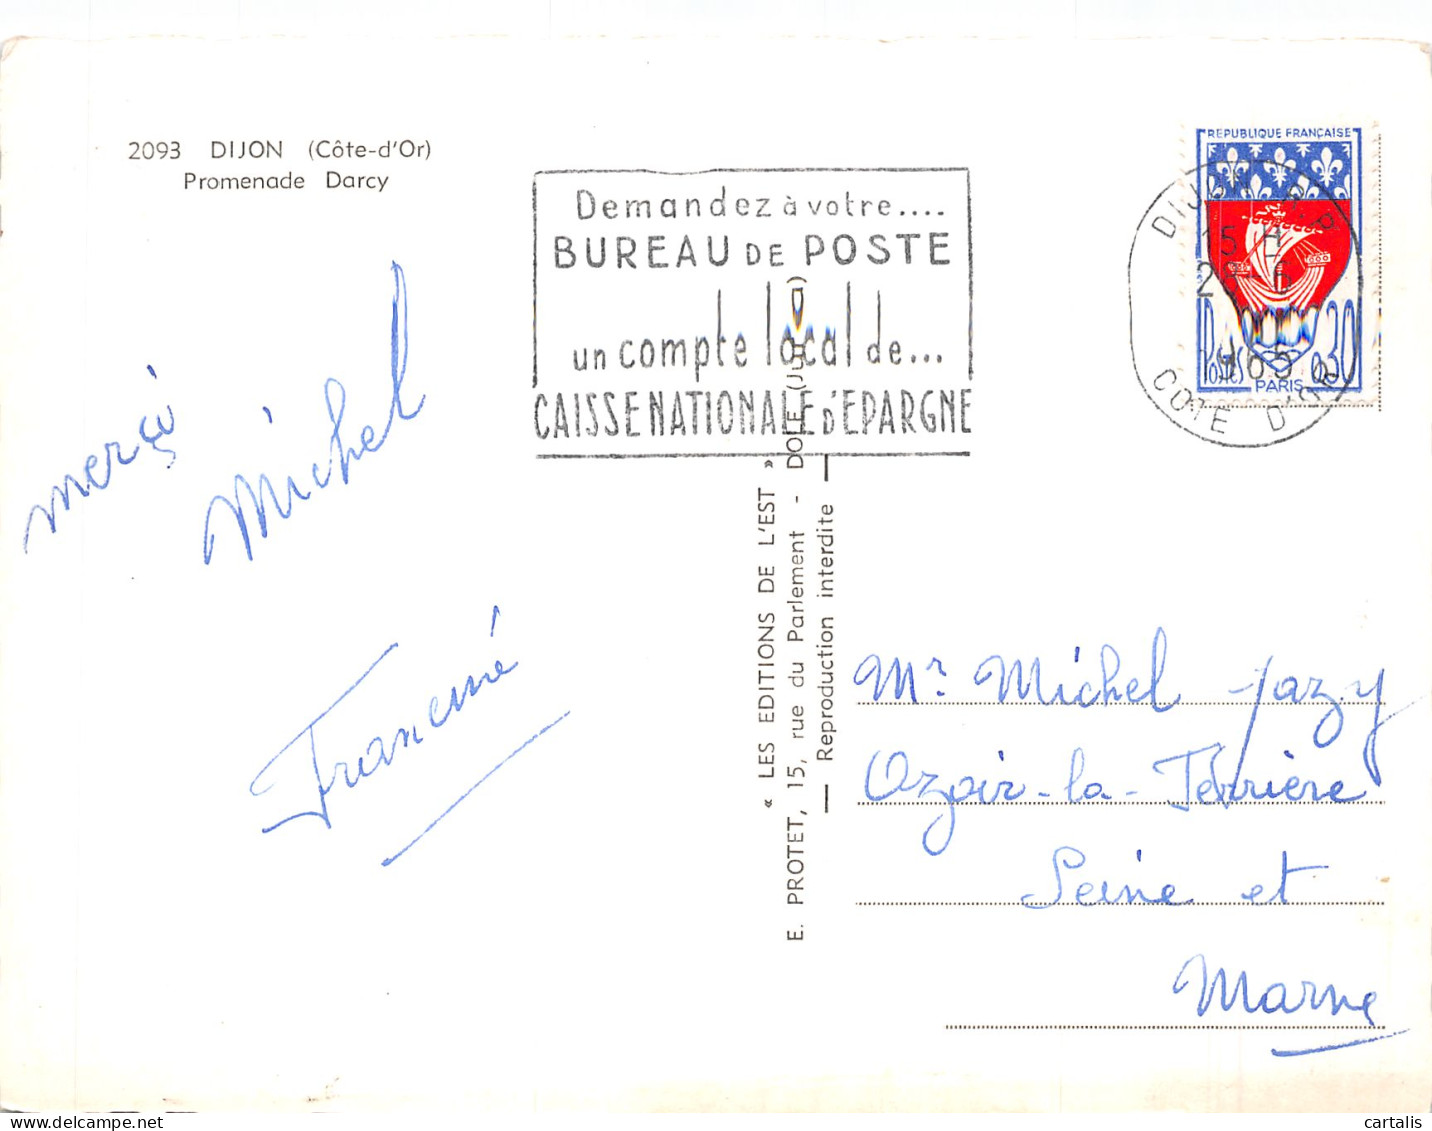 2093 DIJON (Côte-d'Or)
Promenade Darcy
merci
Michel
Demandez à votre....
BUREAU DE POSTE
un compte local de...
CAISSE NATIONALE D'EPARGNE
REPUBLIQUE FRANÇAISE
Postes 0,30
PARIS
DIJON R.P.
15 H
-6
1965
COTE D'OR
« LES EDITIONS DE L'EST »
E. PROTET, 15, rue du Parlement - DOLE (Jura)
— Reproduction interdite —
Mr Michel Jazy
Ozoir-la-Ferrière
Seine et
Marne
cartalis